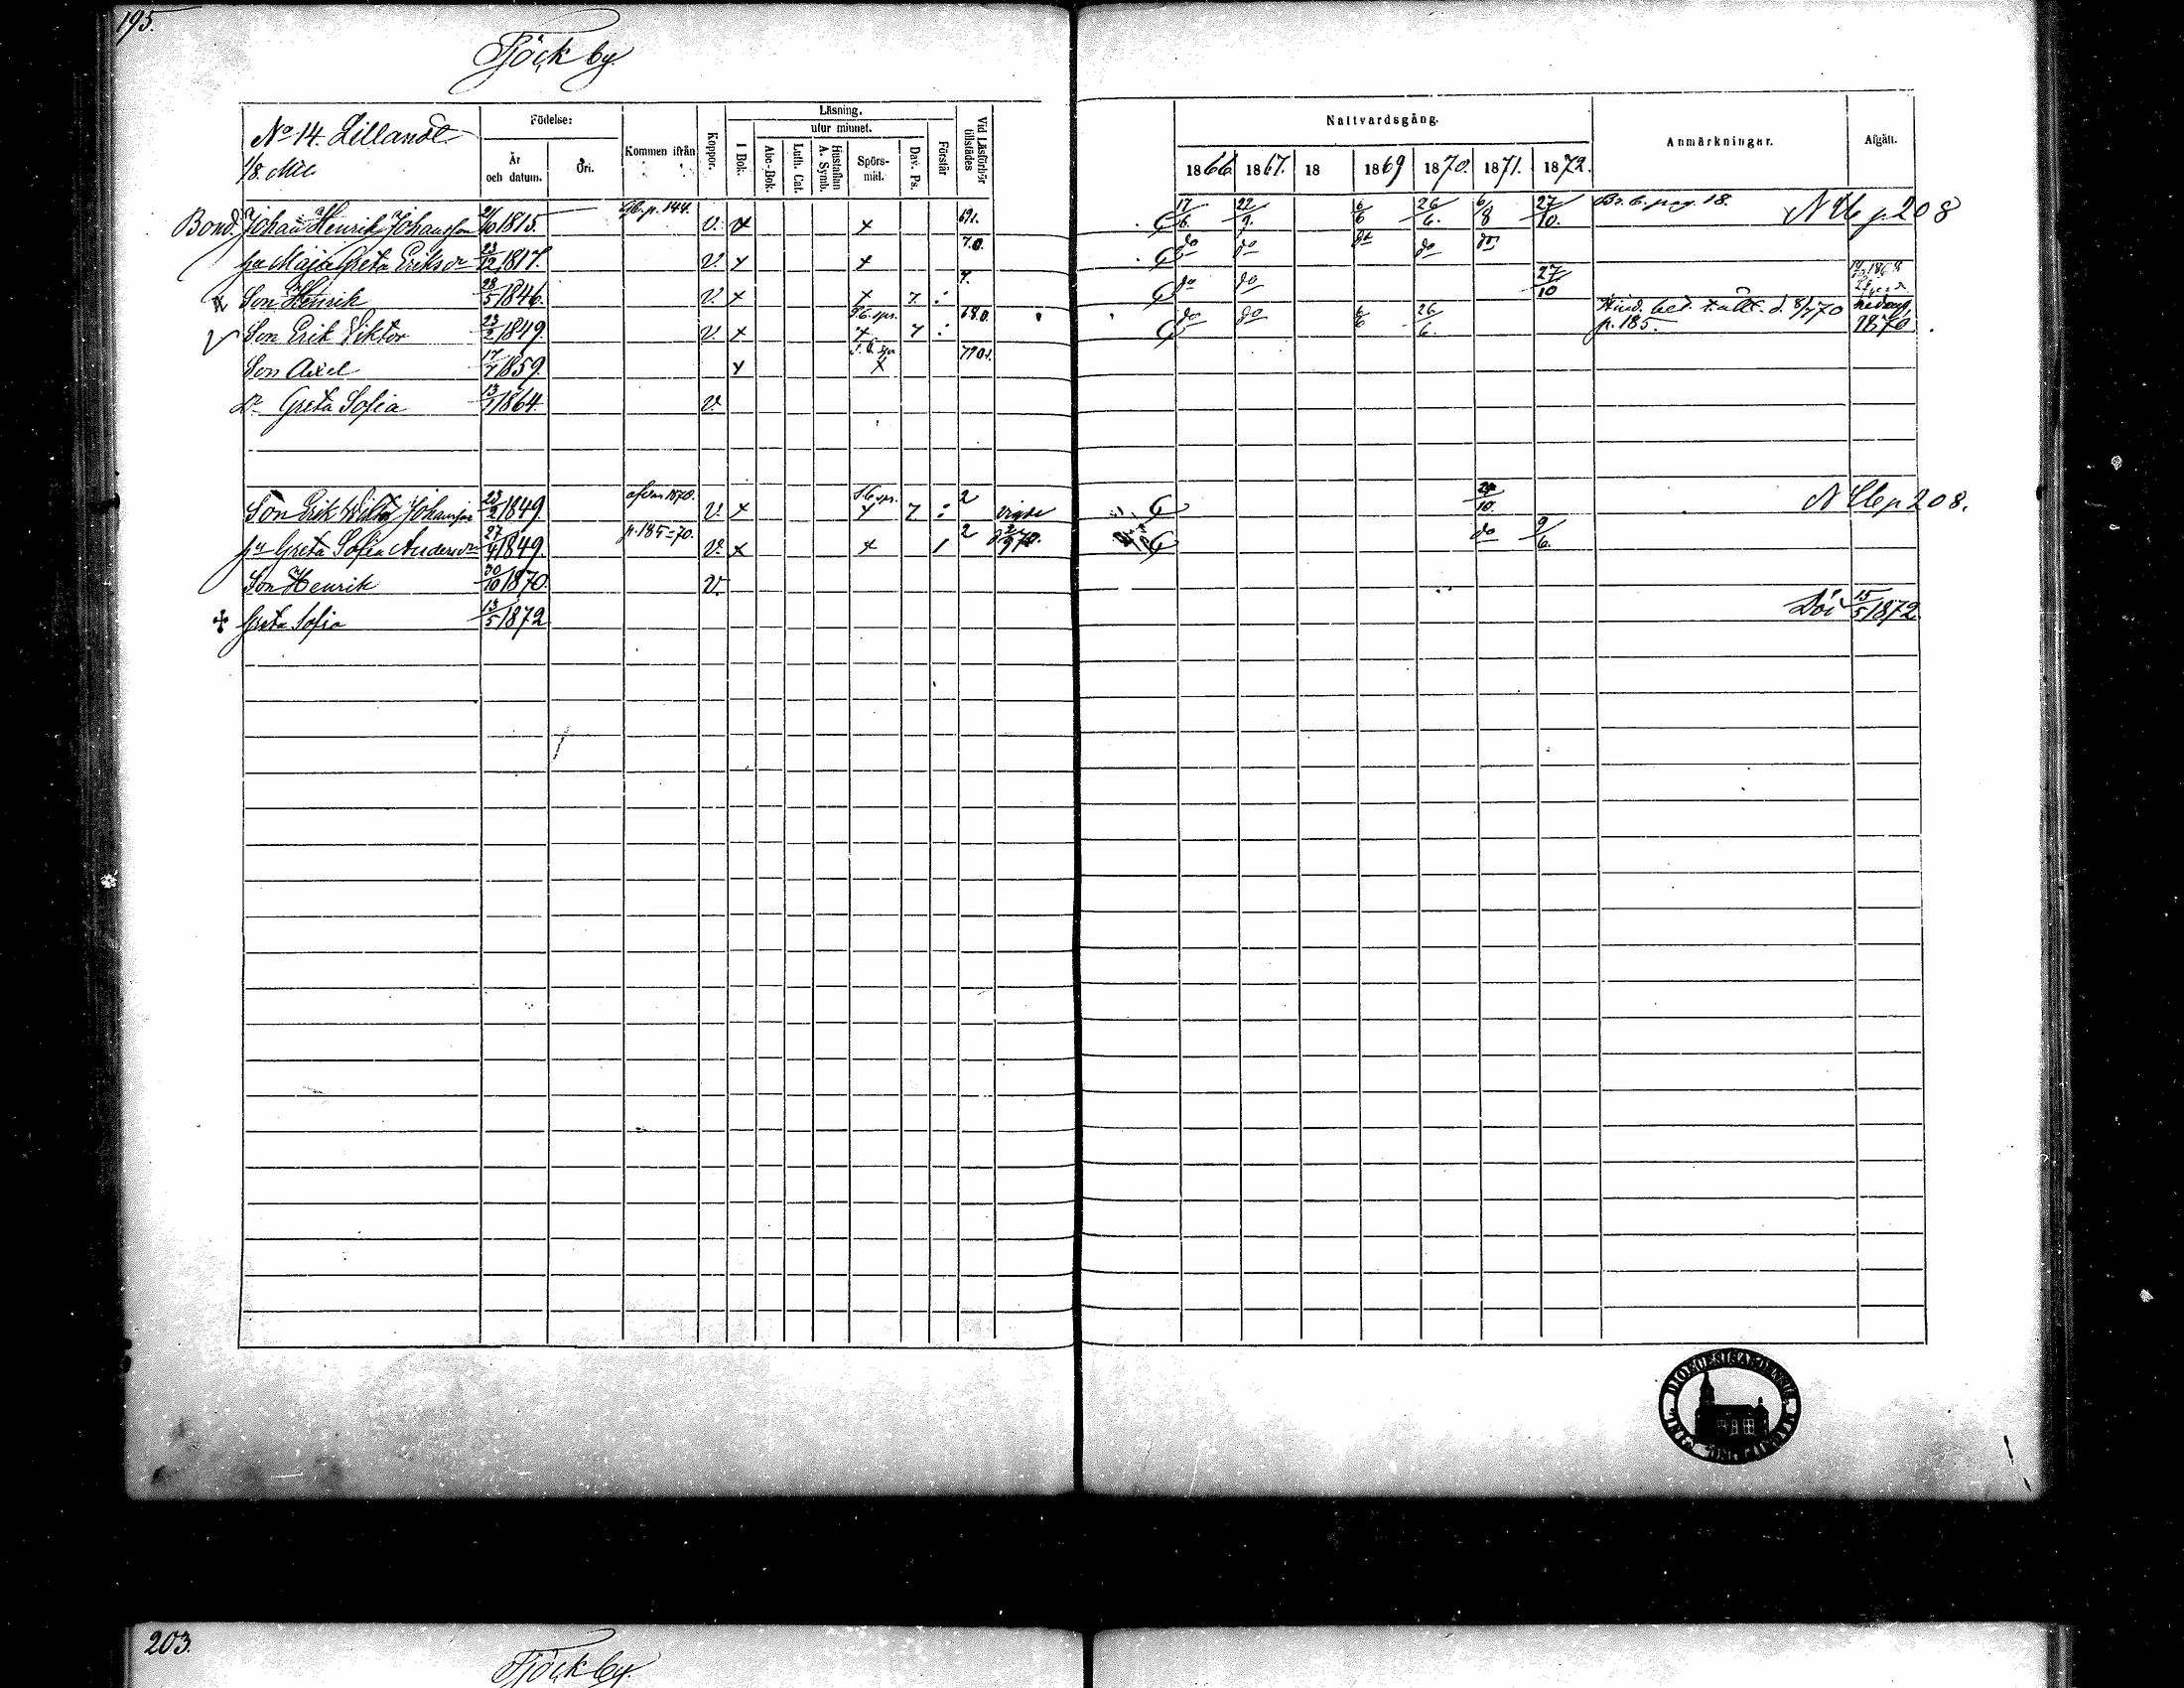 195.
Tjöck by.
No 14. Lillandt
1/8 Mtl.
Födelse:
År och datum.
Ort.
Kommen ifrån
Koppor.
Läsning,
utur minnet.
I Bok.
Abc-Bok.
Luth. Cat.
Hustaflan A. Symb.
Spörs-mål.
Dav. Ps.
Förstår
Vid Läsförhör tillstädes
Nattvardsgång.
1866. 1867. 18 1869 1870. 1871. 1872.
Anmärkningar.
Afgått.
Bond. Johan Henrik Johansson 21/10 1815. Lb. p. 144. V. x x 691. 17/6. 22/9. 6/6 26/6. 6/8 27/10. Br. b. pag. 18. N Cb p 208
hu Maja Greta Eriksdr 23/12 1817. V. x x 70. do do do do do
Son Henrik 28/5 1846. V. x x 7 : 7. do do 27/10
Son Erik Viktor 23/2 1849. V. x S.C. spr. x 7 : 680. do do 6/6 26/6. Hind. bet. t. äkt. d. 8/7 70 p. 185. nedanf. 1870.
Son Axel 17/7 1859. x x
Dr Greta Sofia 13/1 1864. V.
Son Erik Wiktor Johansson 23/2 1849. ofvan 1870. V. x S.C. spr. x 7 : 2 vigde 29/10. N Cb p 208.
hu Greta Sofia Andersdr 27/4 1849. p. 185=70. V. x x / 2 do 9/6.
Son Henrik 30/10 1870 V.
Greta Sofia 13/5 1872 Död 15/5 1872.
203.
Tjöck by.